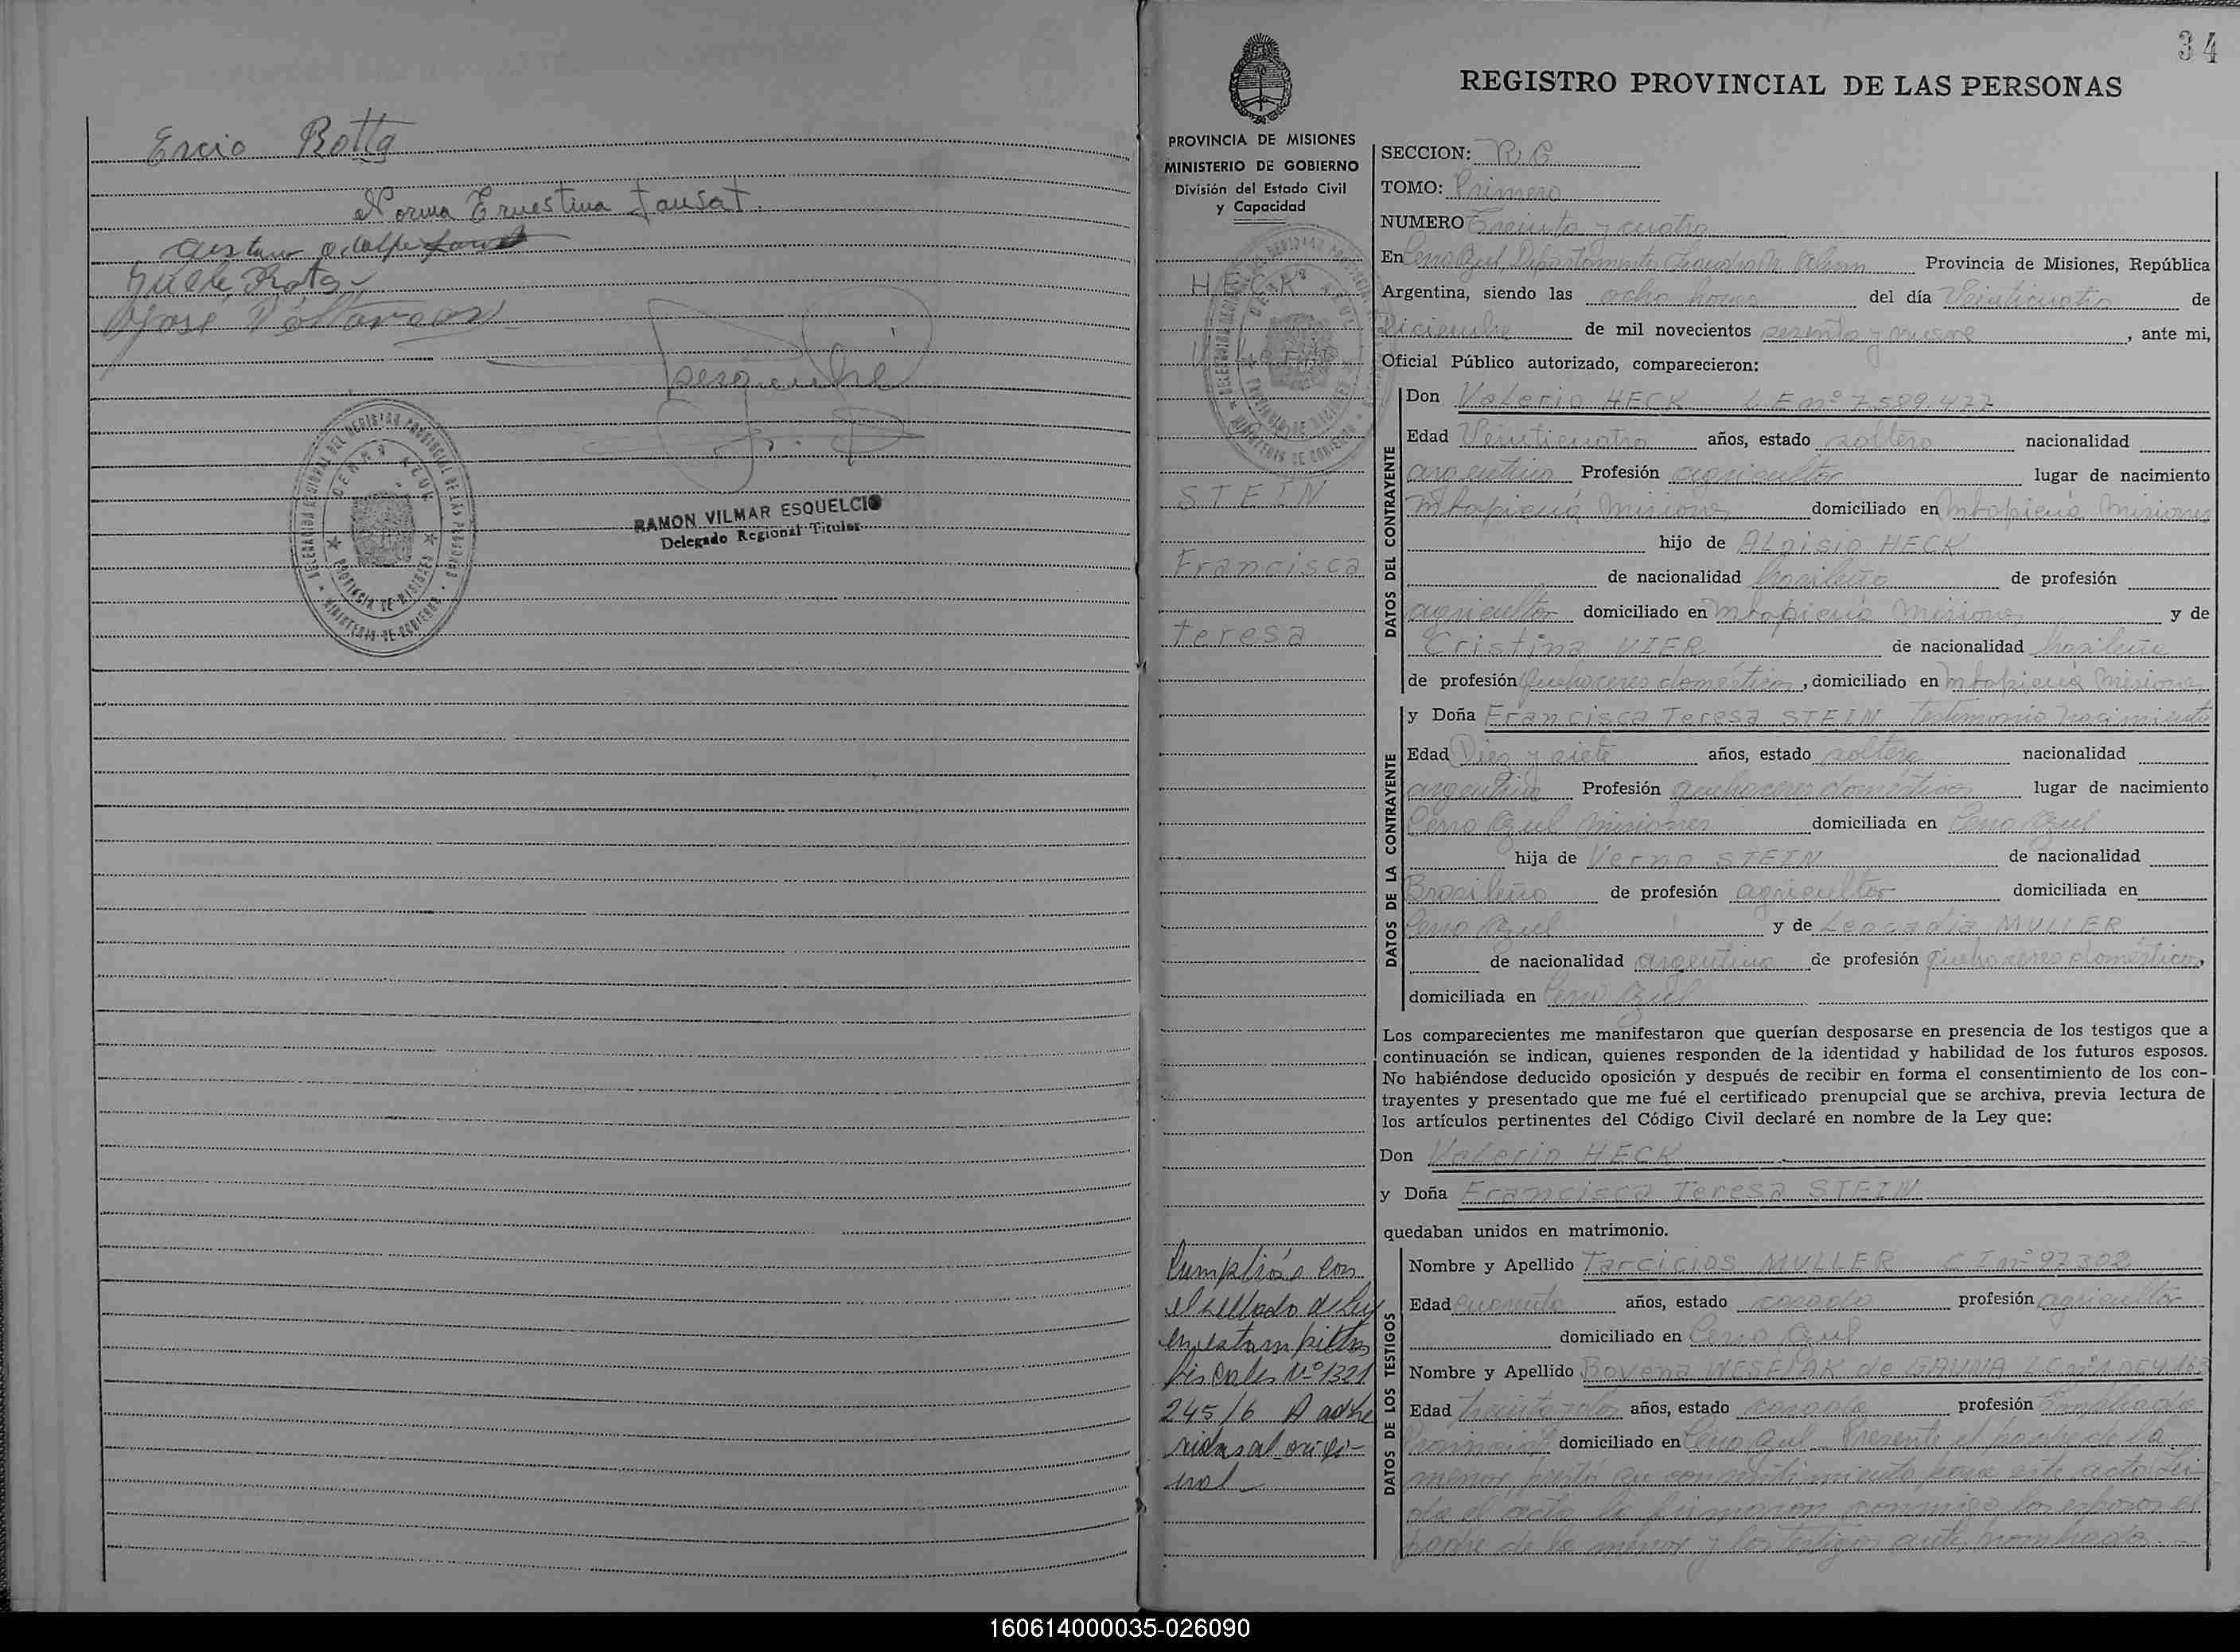 Ercio Rotta
Norma Ernestina Fausat.
Gustavo Adolfo
Rotta
José
DELEGACION REGIONAL DEL REGISTRO PROVINCIAL DE LAS PERSONAS
CERRO AZUL
PROVINCIA DE MISIONES
MINISTERIO DE GOBIERNO
RAMON VILMAR ESQUELCIO
Delegado Regional Titular
34
REGISTRO PROVINCIAL DE LAS PERSONAS
PROVINCIA DE MISIONES
MINISTERIO DE GOBIERNO
División del Estado Civil
y Capacidad
HECK
Valerio
STEIN
Francisca
teresa
Cumplióse con
el sellado de Ley
en estampillas
fiscales Nº 1321
245/6 A adhe
ridas al origi-
nal
SECCION: R.C.
TOMO: Primero
NUMERO Treinta y cuatro
En Cerro Azul, Departamento Leandro N. Alem Provincia de Misiones, República
Argentina, siendo las ocho horas del día Veinticuatro de
Diciembre de mil novecientos sesenta y nueve, ante mi,
Oficial Público autorizado, comparecieron:
DATOS DEL CONTRAYENTE
Don Valerio HECK L E nº 7.589.477
Edad Veinticuatro años, estado soltero nacionalidad
argentino Profesión agricultor lugar de nacimiento
Mbopicuá Misiones domiciliado en Mbopicuá Misiones
hijo de ALoisio HECK
de nacionalidad brasileño de profesión
agricultor domiciliado en Mbopicuá Misiones y de
Cristina VIER de nacionalidad brasileña
de profesión quehaceres domésticos, domiciliado en Mbopicuá Misiones
DATOS DE LA CONTRAYENTE
y Doña Francisca Teresa STEIN Testimonio nacimiento
Edad Diez y siete años, estado soltera nacionalidad
argentina Profesión quehaceres domésticos lugar de nacimiento
Cerro Azul Misiones domiciliada en Cerro Azul
hija de Verno STEIN de nacionalidad
Brasileño de profesión agricultor domiciliada en
Cerro Azul y de Leocadia MULLER
de nacionalidad argentina de profesión quehaceres domésticos,
domiciliada en Cerro Azul
Los comparecientes me manifestaron que querían desposarse en presencia de los testigos que a
continuación se indican, quienes responden de la identidad y habilidad de los futuros esposos.
No habiéndose deducido oposición y después de recibir en forma el consentimiento de los con-
trayentes y presentado que me fué el certificado prenupcial que se archiva, previa lectura de
los artículos pertinentes del Código Civil declaré en nombre de la Ley que:
Don Valerio HECK
y Doña Francisca Teresa STEIN
quedaban unidos en matrimonio.
DATOS DE LOS TESTIGOS
Nombre y Apellido Tarcicios MULLER C I nº 97302
Edad cuarenta años, estado casado profesión agricultor
domiciliado en Cerro Azul
Nombre y Apellido Bovena WESELAK de
Edad treinta y dos años, estado casada profesión Empleada
Provincial domiciliado en Cerro Azul Presente el padre de la
menor, prestó su consentimiento para este acto. Leí-
da el acta la firmaron conmigo los esposos el
padre de la menor y los testigos ante nombrados.
160614000035-026090